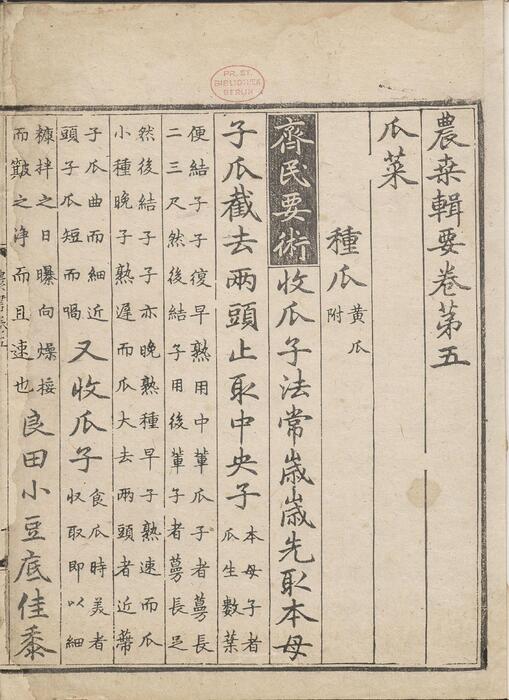 PR. ST.
BIBLIOTHEK
BERLIN
農桒輯要卷第五
瓜菜
種瓜
黃瓜
附
齊民要術收瓜子法常歲歲先取本母
子瓜截去兩頭止取中央子
本母子者
瓜生數葉
便結子子復早熟用中輩瓜子者蔓長
二三尺然後結子用後輩子者蔓長足
然後結子子亦晚熟種早子熟速而瓜
小種晚子熟遲而瓜大去兩頭者近蔕
子瓜曲而細近
頭子瓜短而喎
又收瓜子
食瓜時美者
收取即以細
糠拌之日曝向燥挼
而簸之净而且速也
良田小豆底佳黍